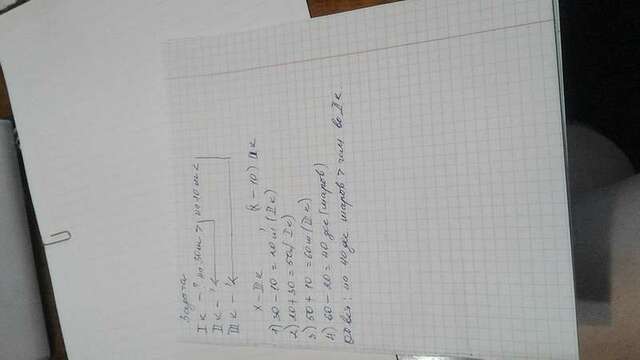 Задача
I к - ? на 30 ш >, на 10 ш <
II к - ?
III к - ?
X - II к (X - 10) II к
1) 30 - 10 = 20 ш (II к)
2) 20 + 30 = 50 (I к)
3) 50 + 10 = 60 ш (III к)
4) 60 - 20 = 40 (шаров)
Ответ: на 40 шаров > чем во II к